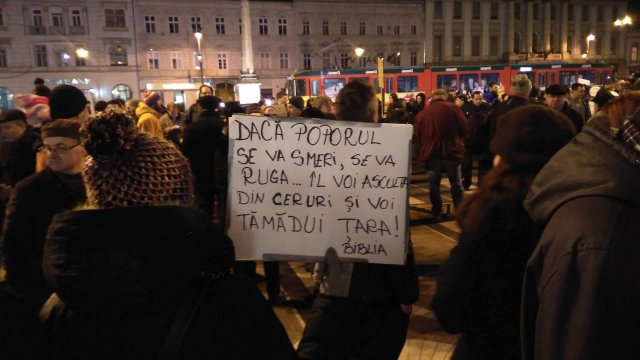 DACĂ POPORUL
SE VA SMERI, SE VA
RUGA... ÎL VOI ASCULTA
DIN CERURI ȘI VOI
TĂMĂDUI ȚARA!
BIBLIA